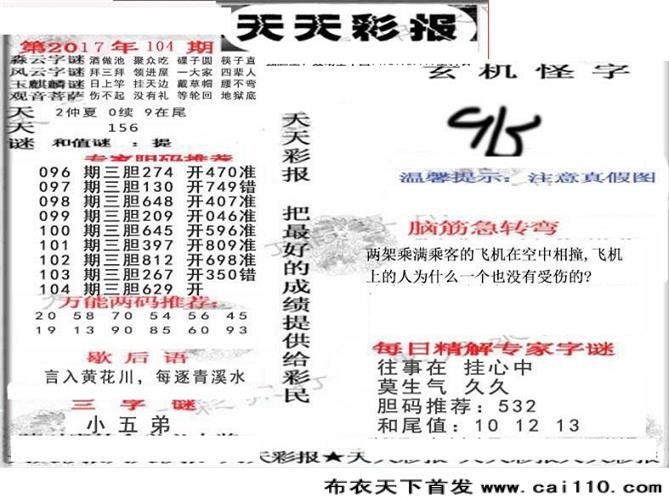 天天彩报
第2017年104期
淼云字谜 酒做池 聚众吃 碟子圆 筷子直
风云字谜 拜三拜 领进屋 一大家 四辈人
玉麒麟谜 日上竿 挂天边 戴草帽 腰不弯
观音菩萨 伤不起 没有礼 等轮回 地狱底
天 2仲夏 0续 9在尾
天 156
谜 和值谜: 提
专家胆码推荐
096 期三胆274 开470准
097 期三胆130 开749错
098 期三胆648 开407准
099 期三胆209 开046准
100 期三胆645 开596准
101 期三胆397 开809准
102 期三胆812 开698准
103 期三胆267 开350错
104 期三胆629 开
万能两码推荐:
20 58 70 54 56 45
19 13 90 85 60 93
歇后语
言入黄花川，每逐青溪水
三字谜
小五弟
天天彩报 把最好的成绩提供给彩民
玄机怪字
温馨提示: 注意真假图
脑筋急转弯
两架乘满乘客的飞机在空中相撞,飞机
上的人为什么一个也没有受伤的?
每日精解专家字谜
往事在 挂心中
莫生气 久久
胆码推荐: 532
和尾值: 10 12 13
天彩报★天
布衣天下首发 www.cai110.com